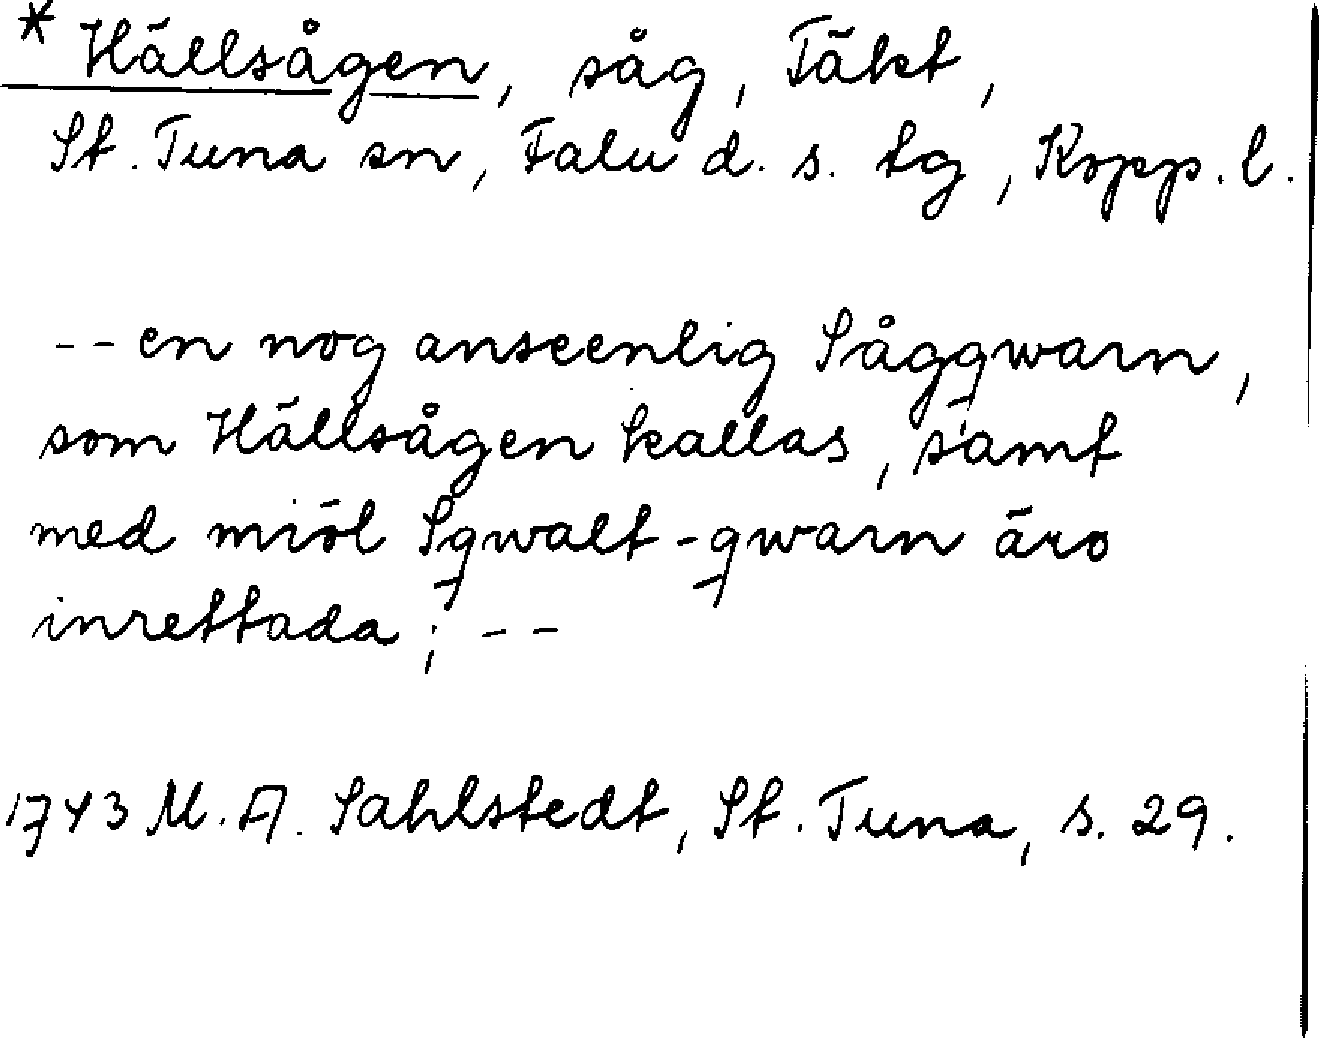 * Hällsågen, såg, Täkt,
St. Tuna sn, Falu d. s. tg, Kopp. l.
-- en nog anseenlig Sågqwarn,
som Hällsågen kallas, sāmt
med miöl Sqwalt-qwarn äro
inrettada; --
1743 M. A. Sahlstedt, St. Tuna, s. 29.